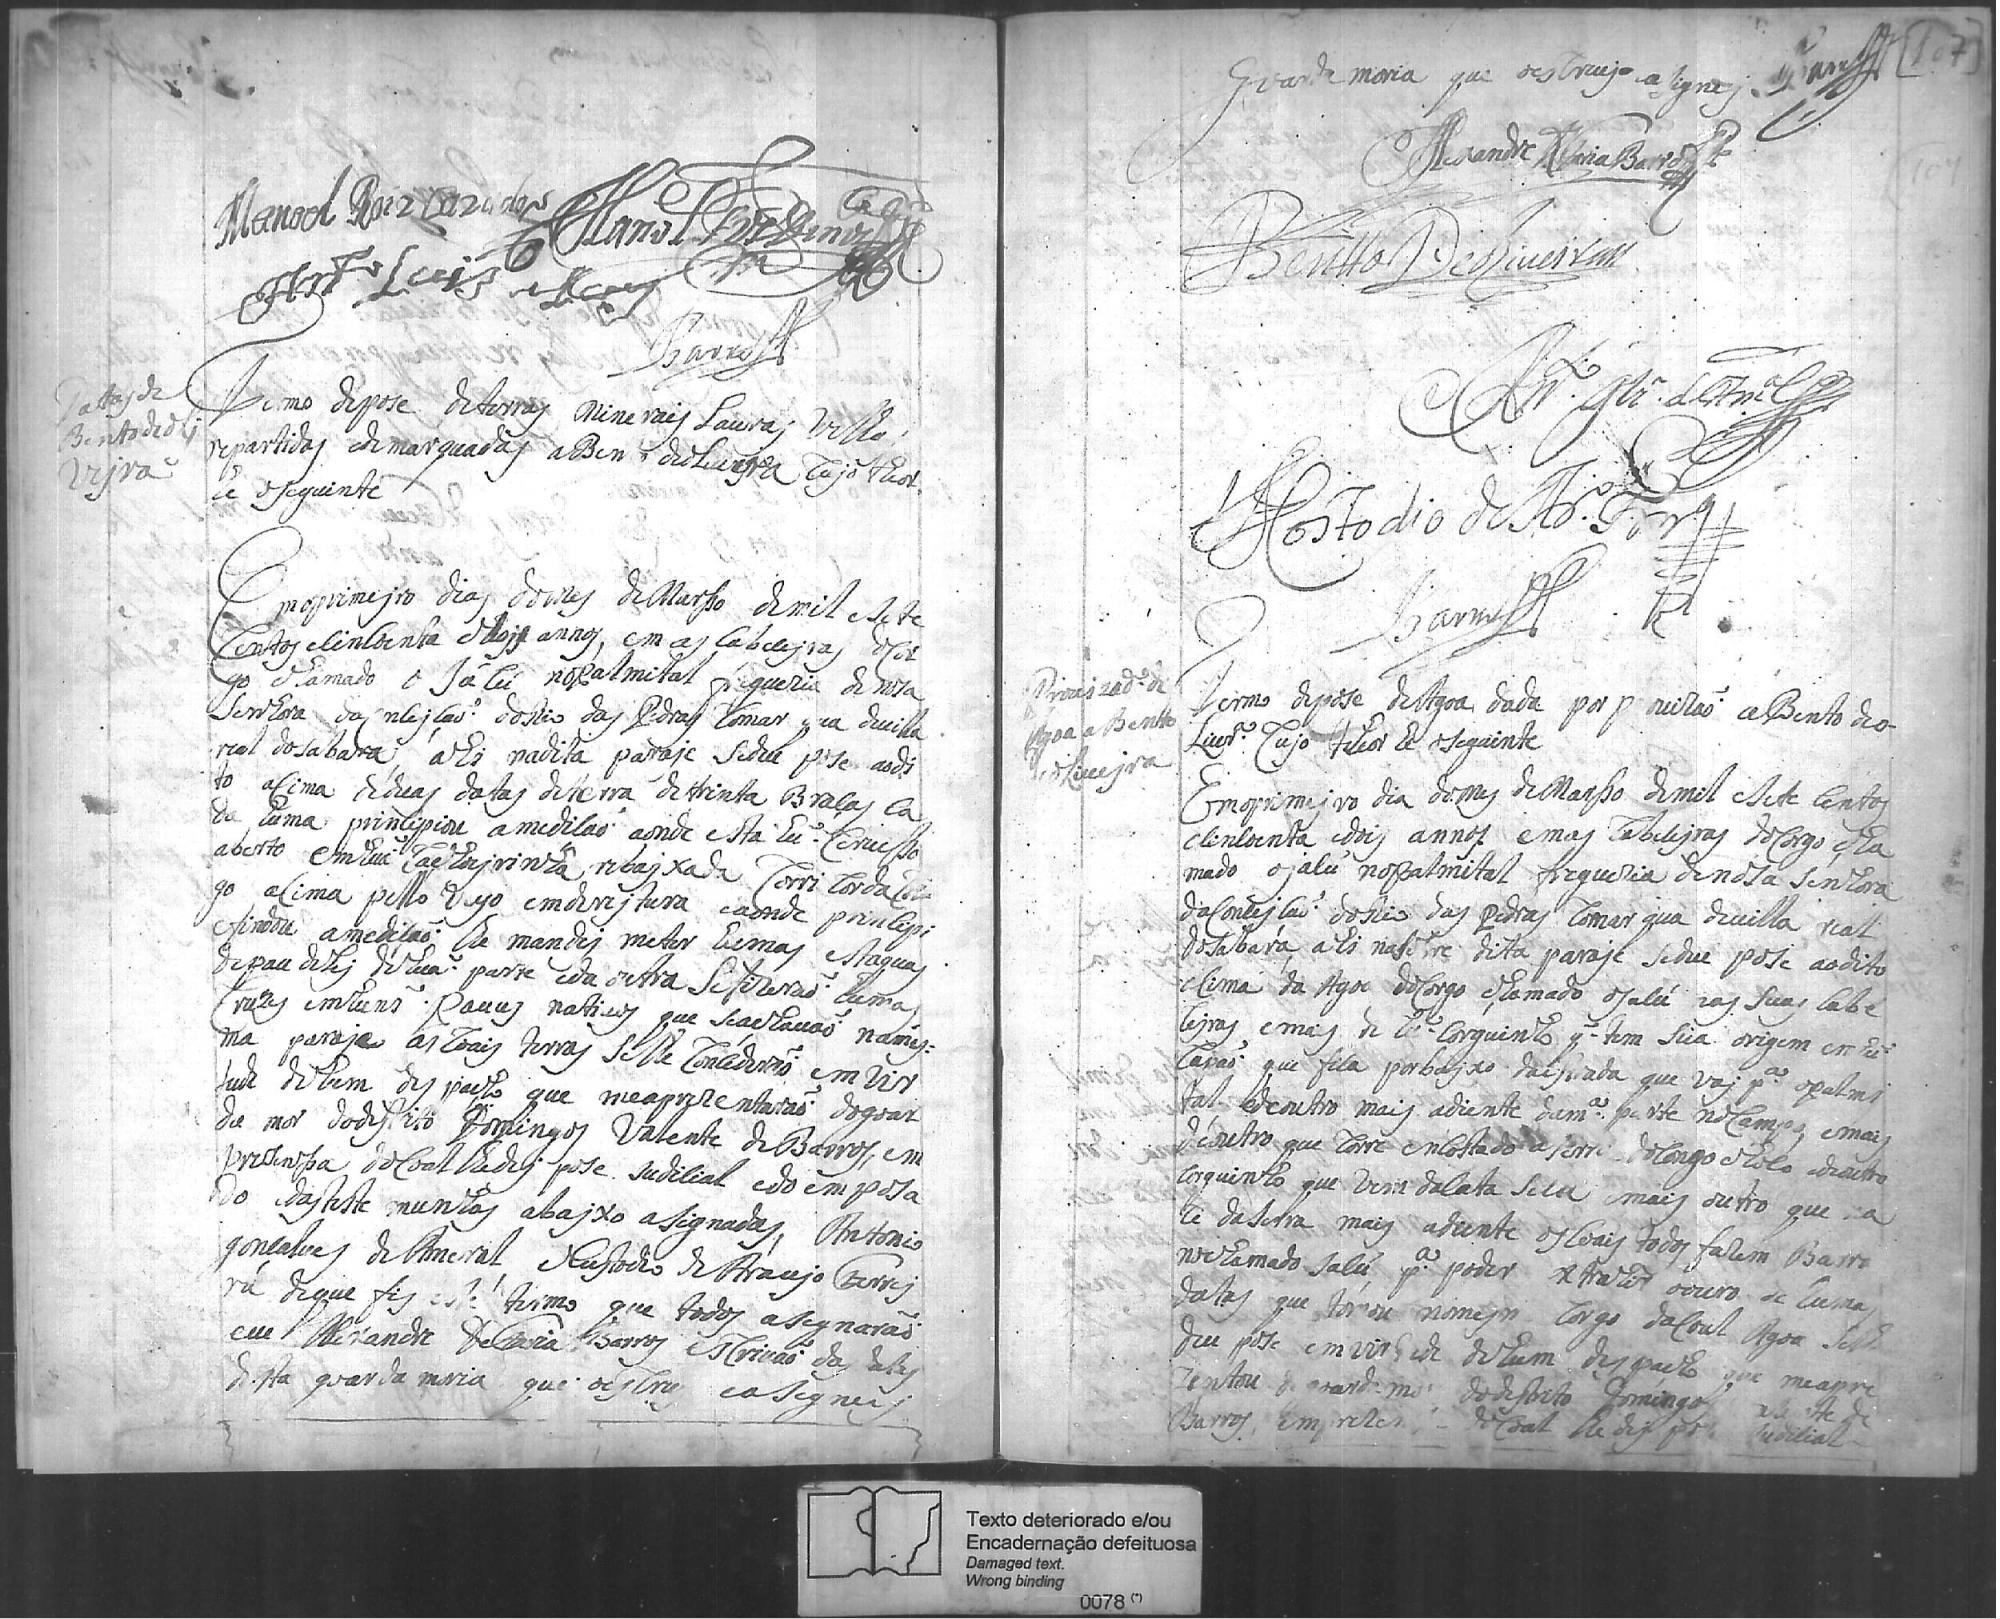 Manoel Roiz
Barros
Dattas de
Bento de oli
vejra
Termo de pose de terras minerais Lavras
repartidas e demarquadas a Ben.to de oliveyra Cujo theor
he o seguinte
Em oprimejro dias do mes de Marsso de mil e sete
Centos e sincoenta e dois annos, em as Cabesejras do Cor
go chamado o Jalú no Palmital freguezia de nosa
Senhora da Consejsaõ do Rio das Pedras Comarqua da villa
real do Sabara, ahi na dita paraje se deu pose ao di
to asima de duas datas de terra de trinta Brasas Ca
da huma prinsipiou a medisaõ aonde esta hũ servisso
aberto em hua Cachoejrinha rebajxada Corri Corda Cor
go asima pello vejo em derejtura e aonde prinsipi
e findou a medisaõ lhe mandej meter humas estaquas
de pau de lej de hua parte e da outra se fizeraõ humas
Cruzes em huns Pauus nativos que se achavaõ na mes
ma paraje as Coais terras se lhe Consederaõ em vir
tude de hum despacho que me aprezentaraõ do guar
da mor do distrito Domingos Valente de Barros, em
prezensa do Coal lhe dej pose Judisial e do emposa
do e das teste munhas abajxo asignadas, Antonio
gonsalves de Ameral e Custodio de Araujo Ferrej
ra de que fis este termo que todos asignaraõ
eu Alexandre de Faria Barros escrivaõ das datas
desta guarda moria que o escrevy e asignej
107
Guarda moria que o escrevy e asignej
Barros
Alexandre de Faria Barros
Bentto De oliveira
Ant.º glz. de Am.al
Costodio de Ar.º Ferr.ª
Barros
Provizaõ de
Agoa a Bento
de oliuejra
Termo de pose de Agoa dada por p ouizaõ a Bento de o
liuer.ª Cujo theor he o seguinte
Em oprimejro dia do mes de Marsso de mil e sete Centos
e sincoenta e dois annos em as Cabesejras do Corgo cha
mado o jalú no Palmital freguezia de nosa Senhora
da Consejsaõ do Rio das Pedras Comarqua da villa real
do Sabará, ahi na sobre dita paraje se deu pose ao dito
asima da Agoa do Corgo chamado o jalú nas suas Cabe
sejras e mais de hũ Corguinho q tem sua origem em hũ
Capaõ que fica por bajxo da estrada que vaj p.ª o palmi
tal e de outro mais adiente da m.ª parte no Campo, e mais
de outro que Corre encostado a serra do Congo choco e de outro
Corguinho que vem da lata seca e mais outro que na
se da serra mais adiente os Coais todos fazem Barra
no chamado Jalú p.ª poder extrahir o ouro de humas
datas que tomou no mesmo Corgo da Coal Agoa se lhe
deu pose em virtude de hum despacho que me apre
zentou do guarda mor do destrito Domingos Valente de
Barros, em prezensa do Coal lhe dej pose Judisial
Texto deteriorado e/ou
Encadernação defeituosa
Damaged text.
Wrong binding
0078 (*)